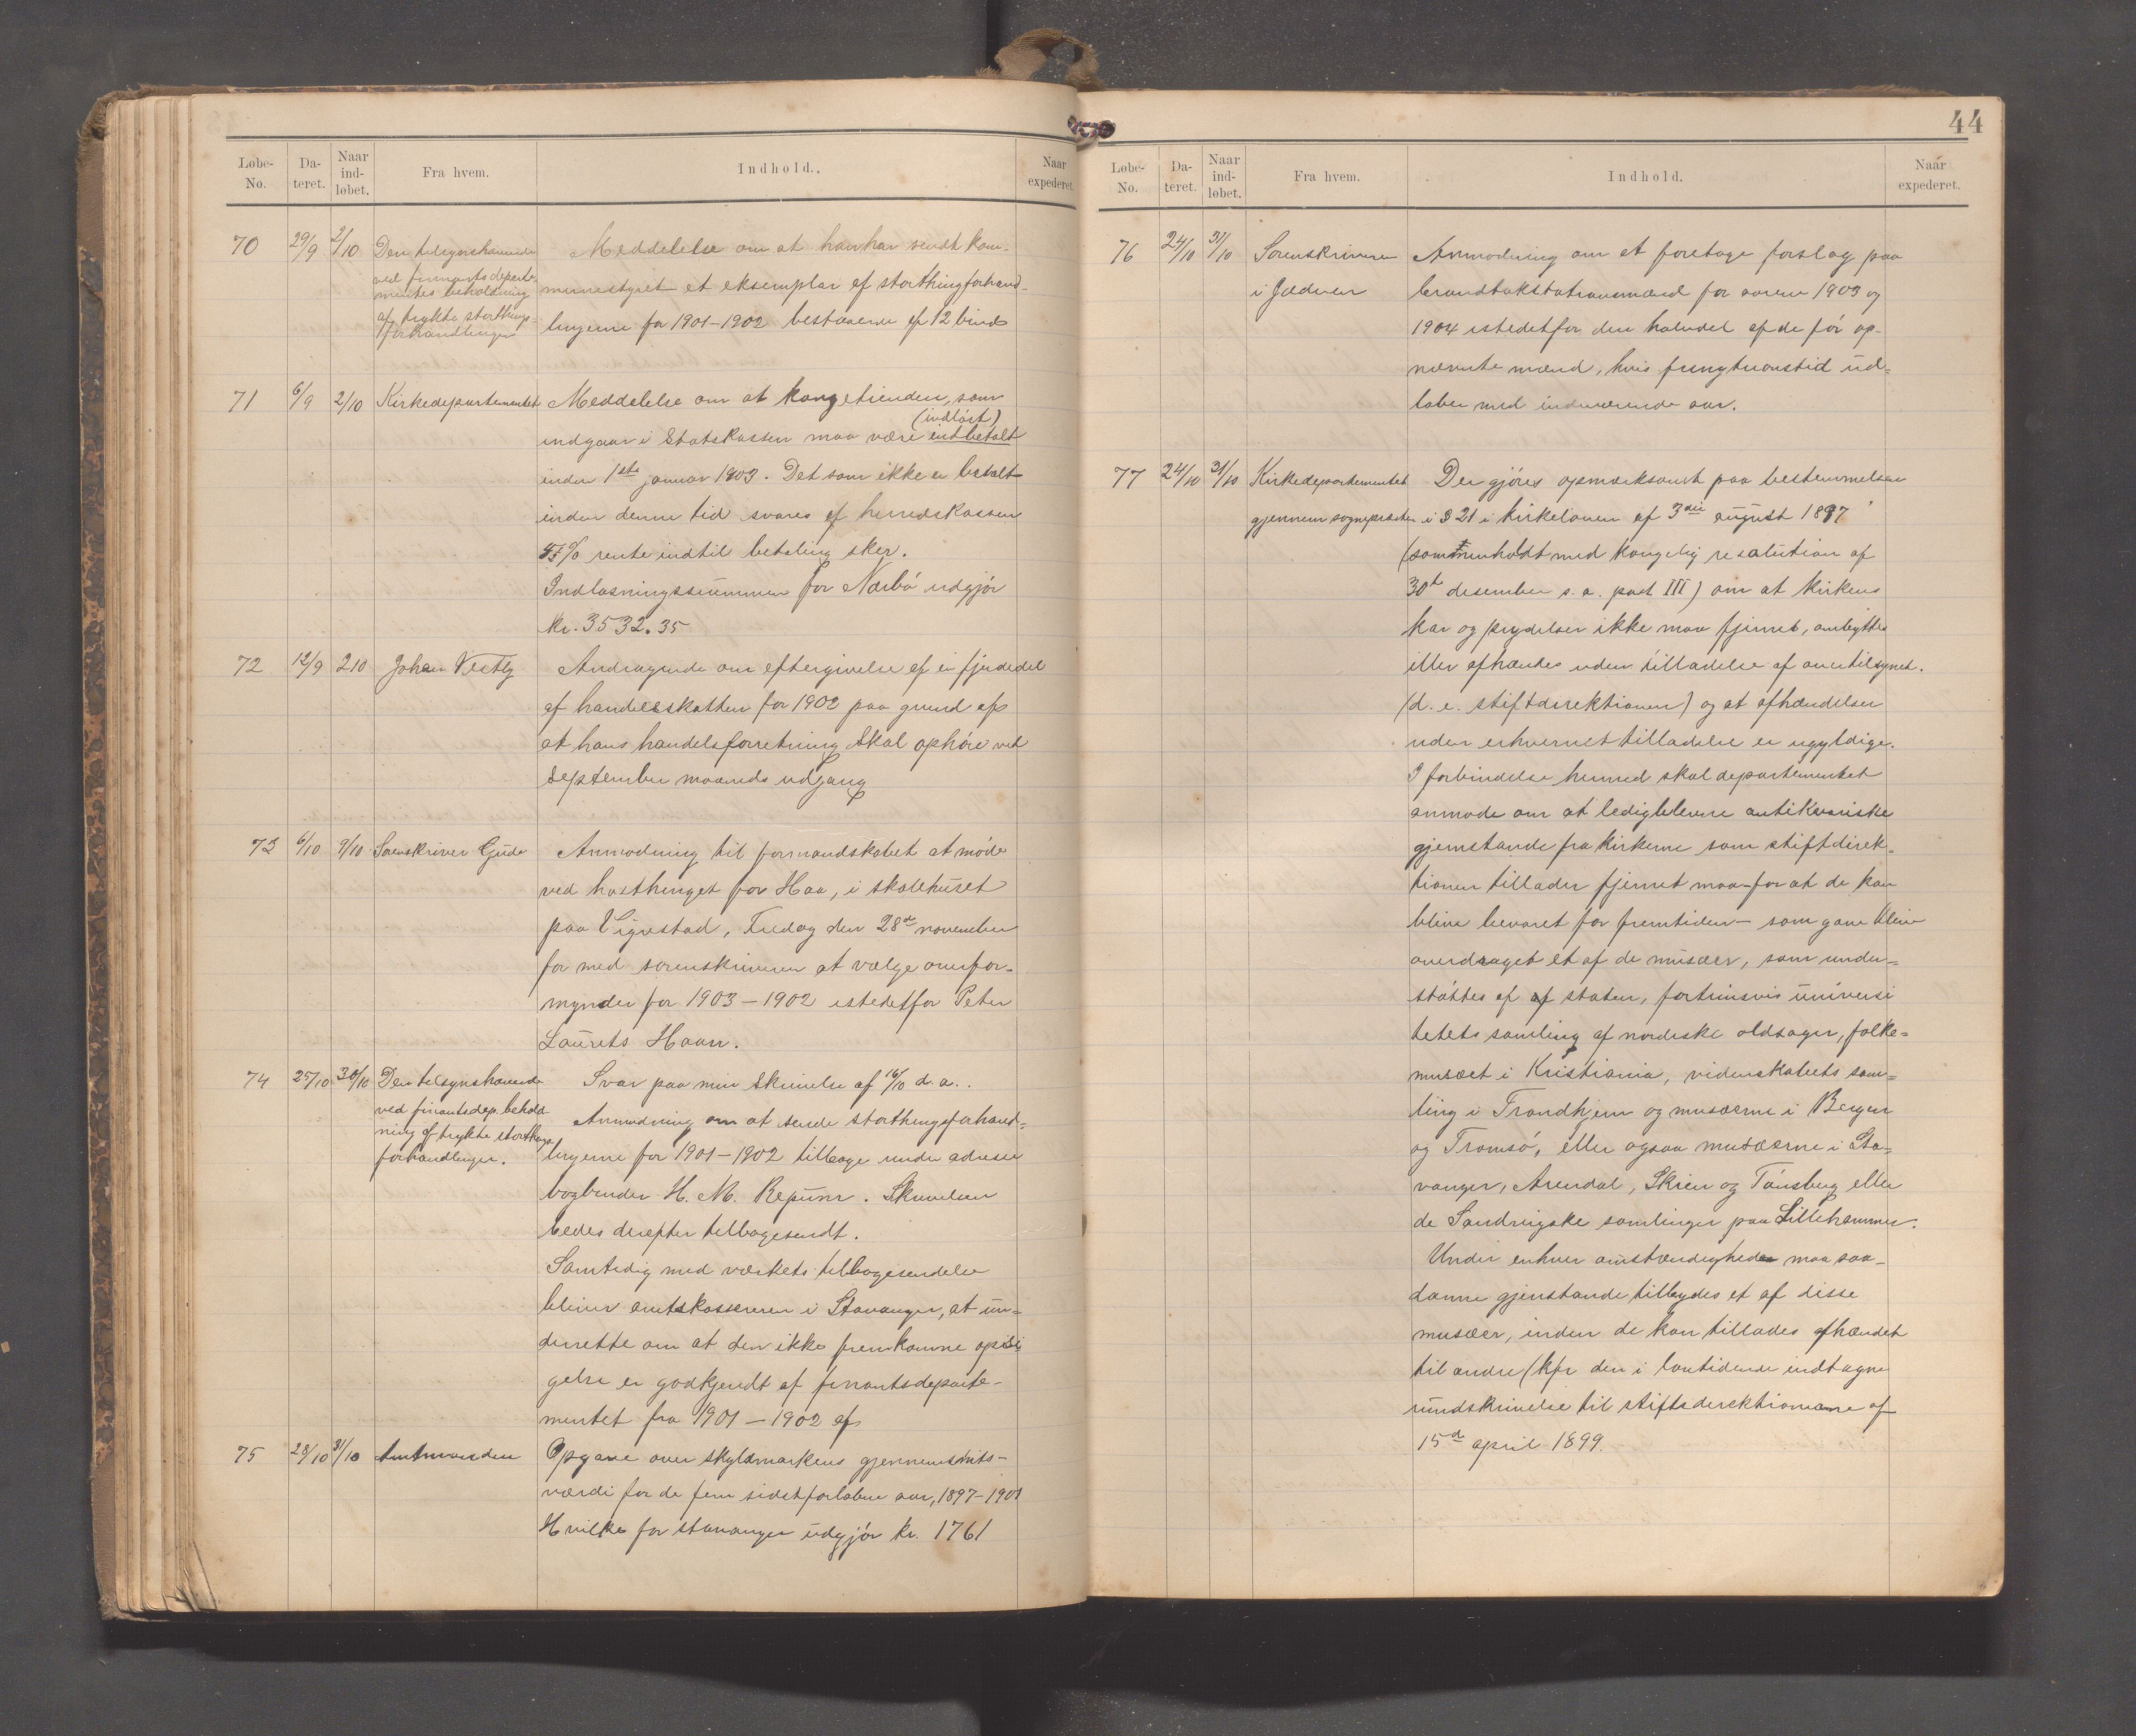 Løbe-No. Da-teret. Naar ind-løbet. Fra hvem. Indhold. Naar expederet.
70 29/9 2/10 Den tilsynshavende
ved finantsdeparte-
mentes beholdning
af trykte storthings-
forhandlinger
Meddelelse om at han har sendt kom-
munestyret et eksemplar af storthingforhand-
lingerne for 1901-1902 bestaaende af 12 bind
71 6/9 2/10 Kirkedepartementet Meddelelse om at kongetienden, som
(indløst)
indgaar i Statskassen maa være indbetalt
inden 1ste januar 1903. Det som ikke er betalt
inden denne tid svares af herredskassen
% rente indtil betaling sker.
Indløsningssummen for Nærbø udgjør
kr. 3532.35
72 12/9 2 10 Johan Vestly Andragende om eftergivelse af en fjerdedel
af handelsskatten for 1902 paa grund af
at hans handelsforretning skal ophøre ved
September maaneds udgang
73 6/10 9/10 Sorenskriver Gude Anmodning til formandskabet at møde
ved høstthinget for Haa, i skolehuset
paa Vigrestad, Fredag den 28de november
for med sorenskriveren at vælge overfor-
mynder for 1903-1902 istedetfor Peter
Laurets Haar.
74 25/10 30/10 Den tilsynshavende
ved finantsdep. behold-
ning af trykte storthings
forhandlinger.
Svar paa min skrivelse af 16/10 d.a..
Anmodning om at sende storthingsforhand-
lingerne for 1901-1902 tilbage under adresse
bogbinder H. M. Refum. Skrivelsen
bedes derefter tilbagesendt.
Samtidig med værkets tilbagesendelse
bliver amtskassereren i Stavanger, at un-
derrette om at den ikke fremkomne
er godkjendt af finantsdeparte-
mentet fra 1901-1902 af
75 28/10 31/10 Amtmanden Opgave over skyldmarkens gjennemsnits-
værdi for de fem sidst forløbne aar, 1897-1901
Hvilke for stavanger udgjør kr. 1761
44
Løbe-No. Da-teret. Naar ind-løbet. Fra hvem. Indhold. Naar expederet.
76 24/10 31/10 Sorenskriveren
i Jæderen
Anmodning om at foretage forslag paa
brandtakstationsmænd for aarene 1903 og
1904 istedetfor den halvdel af de før op-
nævnte mænd, hvis fungtuonstid ud-
løber med indeværende aar.
77 24/10 31/10 Kirkedepartementet
gjennem sognepresten
Der gjøres opmærksomt paa bestemmelsen
i § 21 i kirkeloven af 3die august 1897
(sammenholdt med kongelig resolution af
30te desember s.a. post III) om at kirkens
kar og prydelser ikke maa fjernes, ombyttes
eller afhændes uden tilladelse af overtilsynet.
(d.e. stiftdirektionen) og at afhændelser
uden erhvervet tilladelse er ugyldige.
I forbindelse hermed skal departementet
anmode om at ledigblevne antikvariske
gjenstande fra kirkerne som stiftdirek-
tionen tillader fjernet maa-for at de kan
blive bevaret for fremtiden- som gave blive
overdraget et af de musæer, som under-
støttes af af staten, fortrinsvis universi
tetets samling af nordiske oldsager, folke-
musæet i Kristiania, videnskabets sam-
ling i Trondhjem og musæerne i Bergen
og Tromsø, eller ogsaa musæerne i Sta-
vanger, Arendal, Skien og Tønsberg eller
de Sandvigske samlinger paa Lillehammer.
Under enhver omstændigheder maa saa-
danne gjenstande tilbydes et af disse
musæer, inden de kan tillades afhændet
til andre (kfr den i lovtidende indtagne
rundskrivelse til stiftsdirektionerne af
15de april 1899.